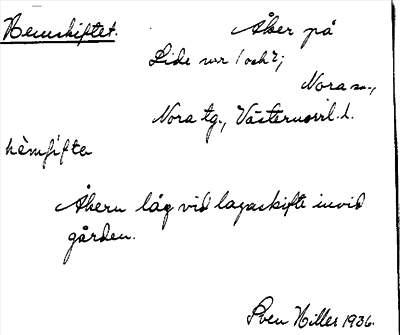 Hemskiftet. Åker på
Lide nr 1 och 2;
Nora sn.,
Nora tg., Västernorrl. l.
hèmʃifta
Åkern låg vid lagaskifte invid
gården.
Sven Hiller 1936.